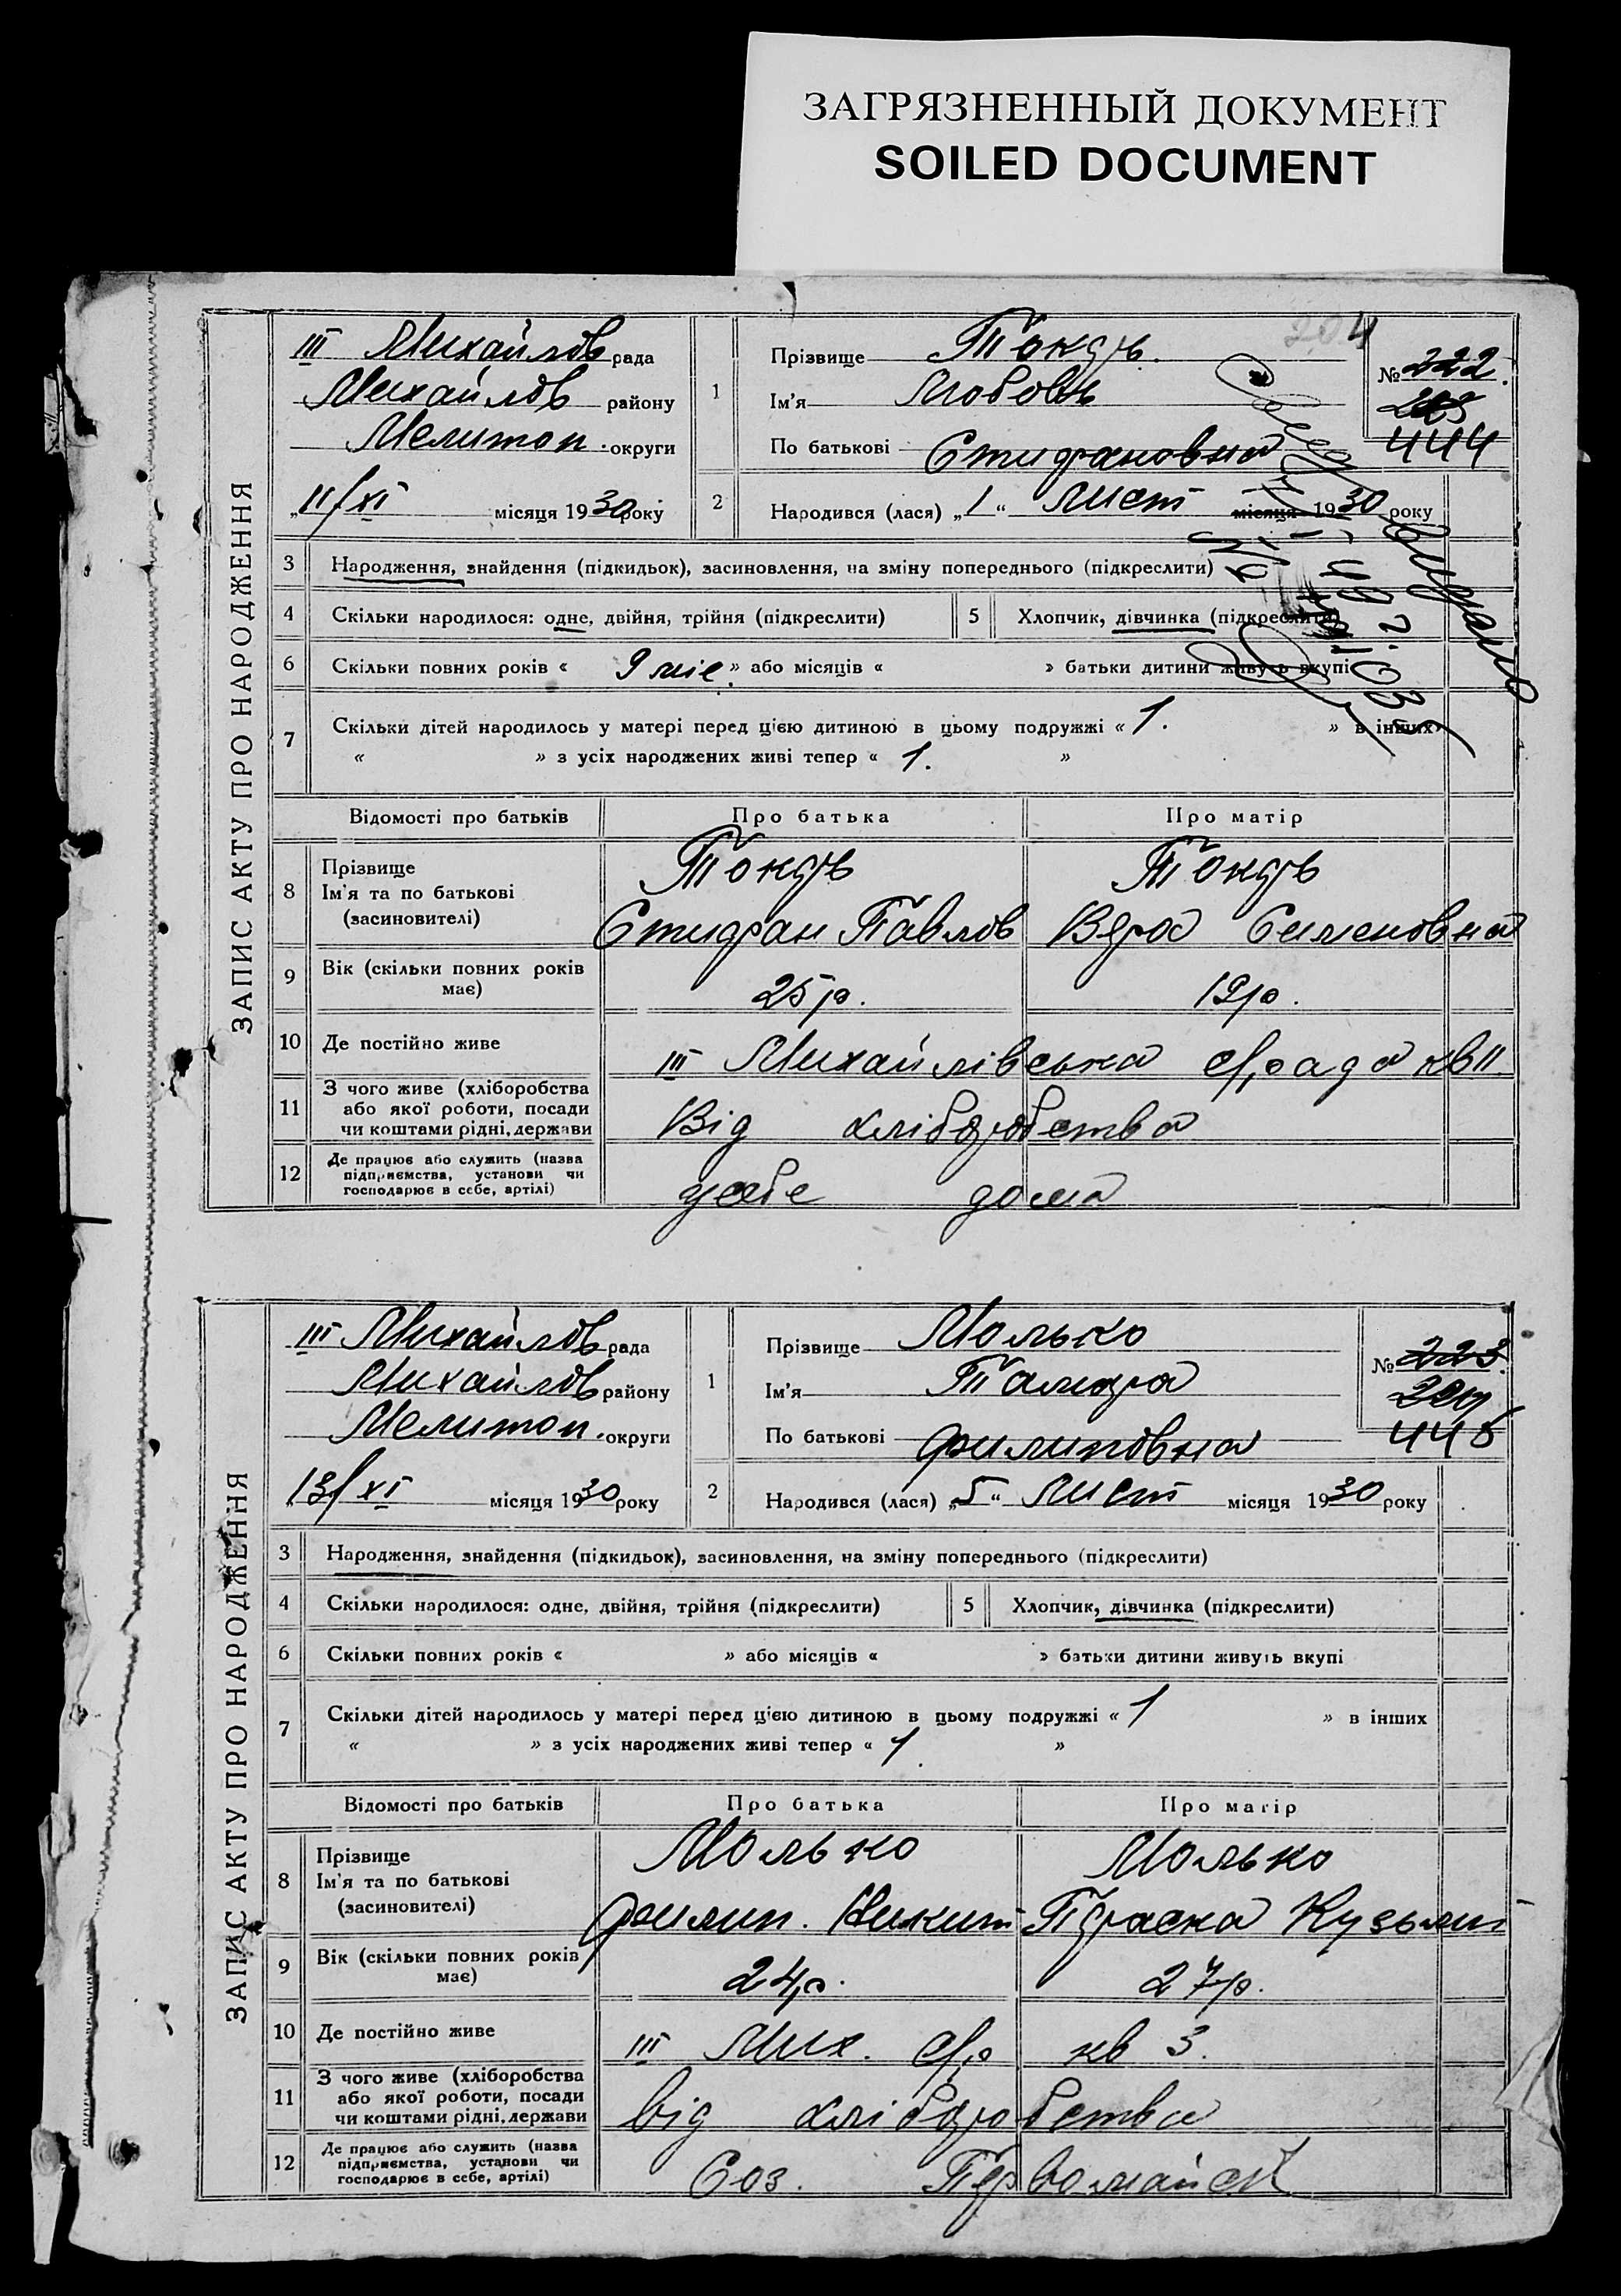 ЗАГРЯЗНЕННЫЙ ДОКУМЕНТ
SOILED DOCUMENT
204
ЗАПИС АКТУ ПРО НАРОДЖЕННЯ
III Михайлов рада
Михайлов району
Мелитоп. округи
„11/XI місяця 1930 року
1 Прізвище
Ім'я Любовь
По батькові Стифановна
№ 222.
444
2 Народився (лася) „1“ Лист місяця 1930 року
3 Народження, знайдення (підкидьок), засиновлення, на зміну попереднього (підкреслити)
4 Скільки народилося: одне, двійня, трійня (підкреслити) 5 Хлопчик, дівчинка (підкреслити)
6 Скільки повних років « 9 міс. » або місяців « » батьки дитини живуть вкупі
7 Скільки дітей народилось у матері перед цією дитиною в цьому подружжі « 1. » в інших
« » з усіх народжених живі тепер « 1. »
видано
Відомості про батьків Про батька Про матір
8 Прізвище
Ім'я та по батькові
(засиновителі)
Стифан Павлов Вера Сименовна
9 Вік (скільки повних років має) 25 р. 19 р.
10 Де постійно живе III Михайлівська с/рада кв II.
11 З чого живе (хліборобства
або якої роботи, посади
чи коштами рідні, держави
Від хліборобства
12 Де працює або служить (назва
підприємства, установи чи
господарює в себе, артілі)
усебе дома
ЗАПИС АКТУ ПРО НАРОДЖЕННЯ
III Михайлов рада
Михайлов району
Мелитоп. округи
13/XI місяця 1930 року
1 Прізвище Молько
Ім'я Тамара
По батькові Филиповна
№ 223.
445
2 Народився (лася) „5“ Лист місяця 1930 року
3 Народження, знайдення (підкидьок), засиновлення, на зміну попереднього (підкреслити)
4 Скільки народилося: одне, двійня, трійня (підкреслити) 5 Хлопчик, дівчинка (підкреслити)
6 Скільки повних років « » або місяців « » батьки дитини живуть вкупі
7 Скільки дітей народилось у матері перед цією дитиною в цьому подружжі « 1 » в інших
« » з усіх народжених живі тепер « 1 »
Відомості про батьків Про батька Про матір
8 Прізвище
Ім'я та по батькові
(засиновителі)
Молько Молько
Филип. Никит Праска Кузьми
9 Вік (скільки повних років має) 24 р. 27 р.
10 Де постійно живе III Мих. с/р кв 3.
11 З чого живе (хліборобства
або якої роботи, посади
чи коштами рідні, держави
від хліборобства
12 Де працює або служить (назва
підприємства, установи чи
господарює в себе, артілі)
Соз. Первомайск